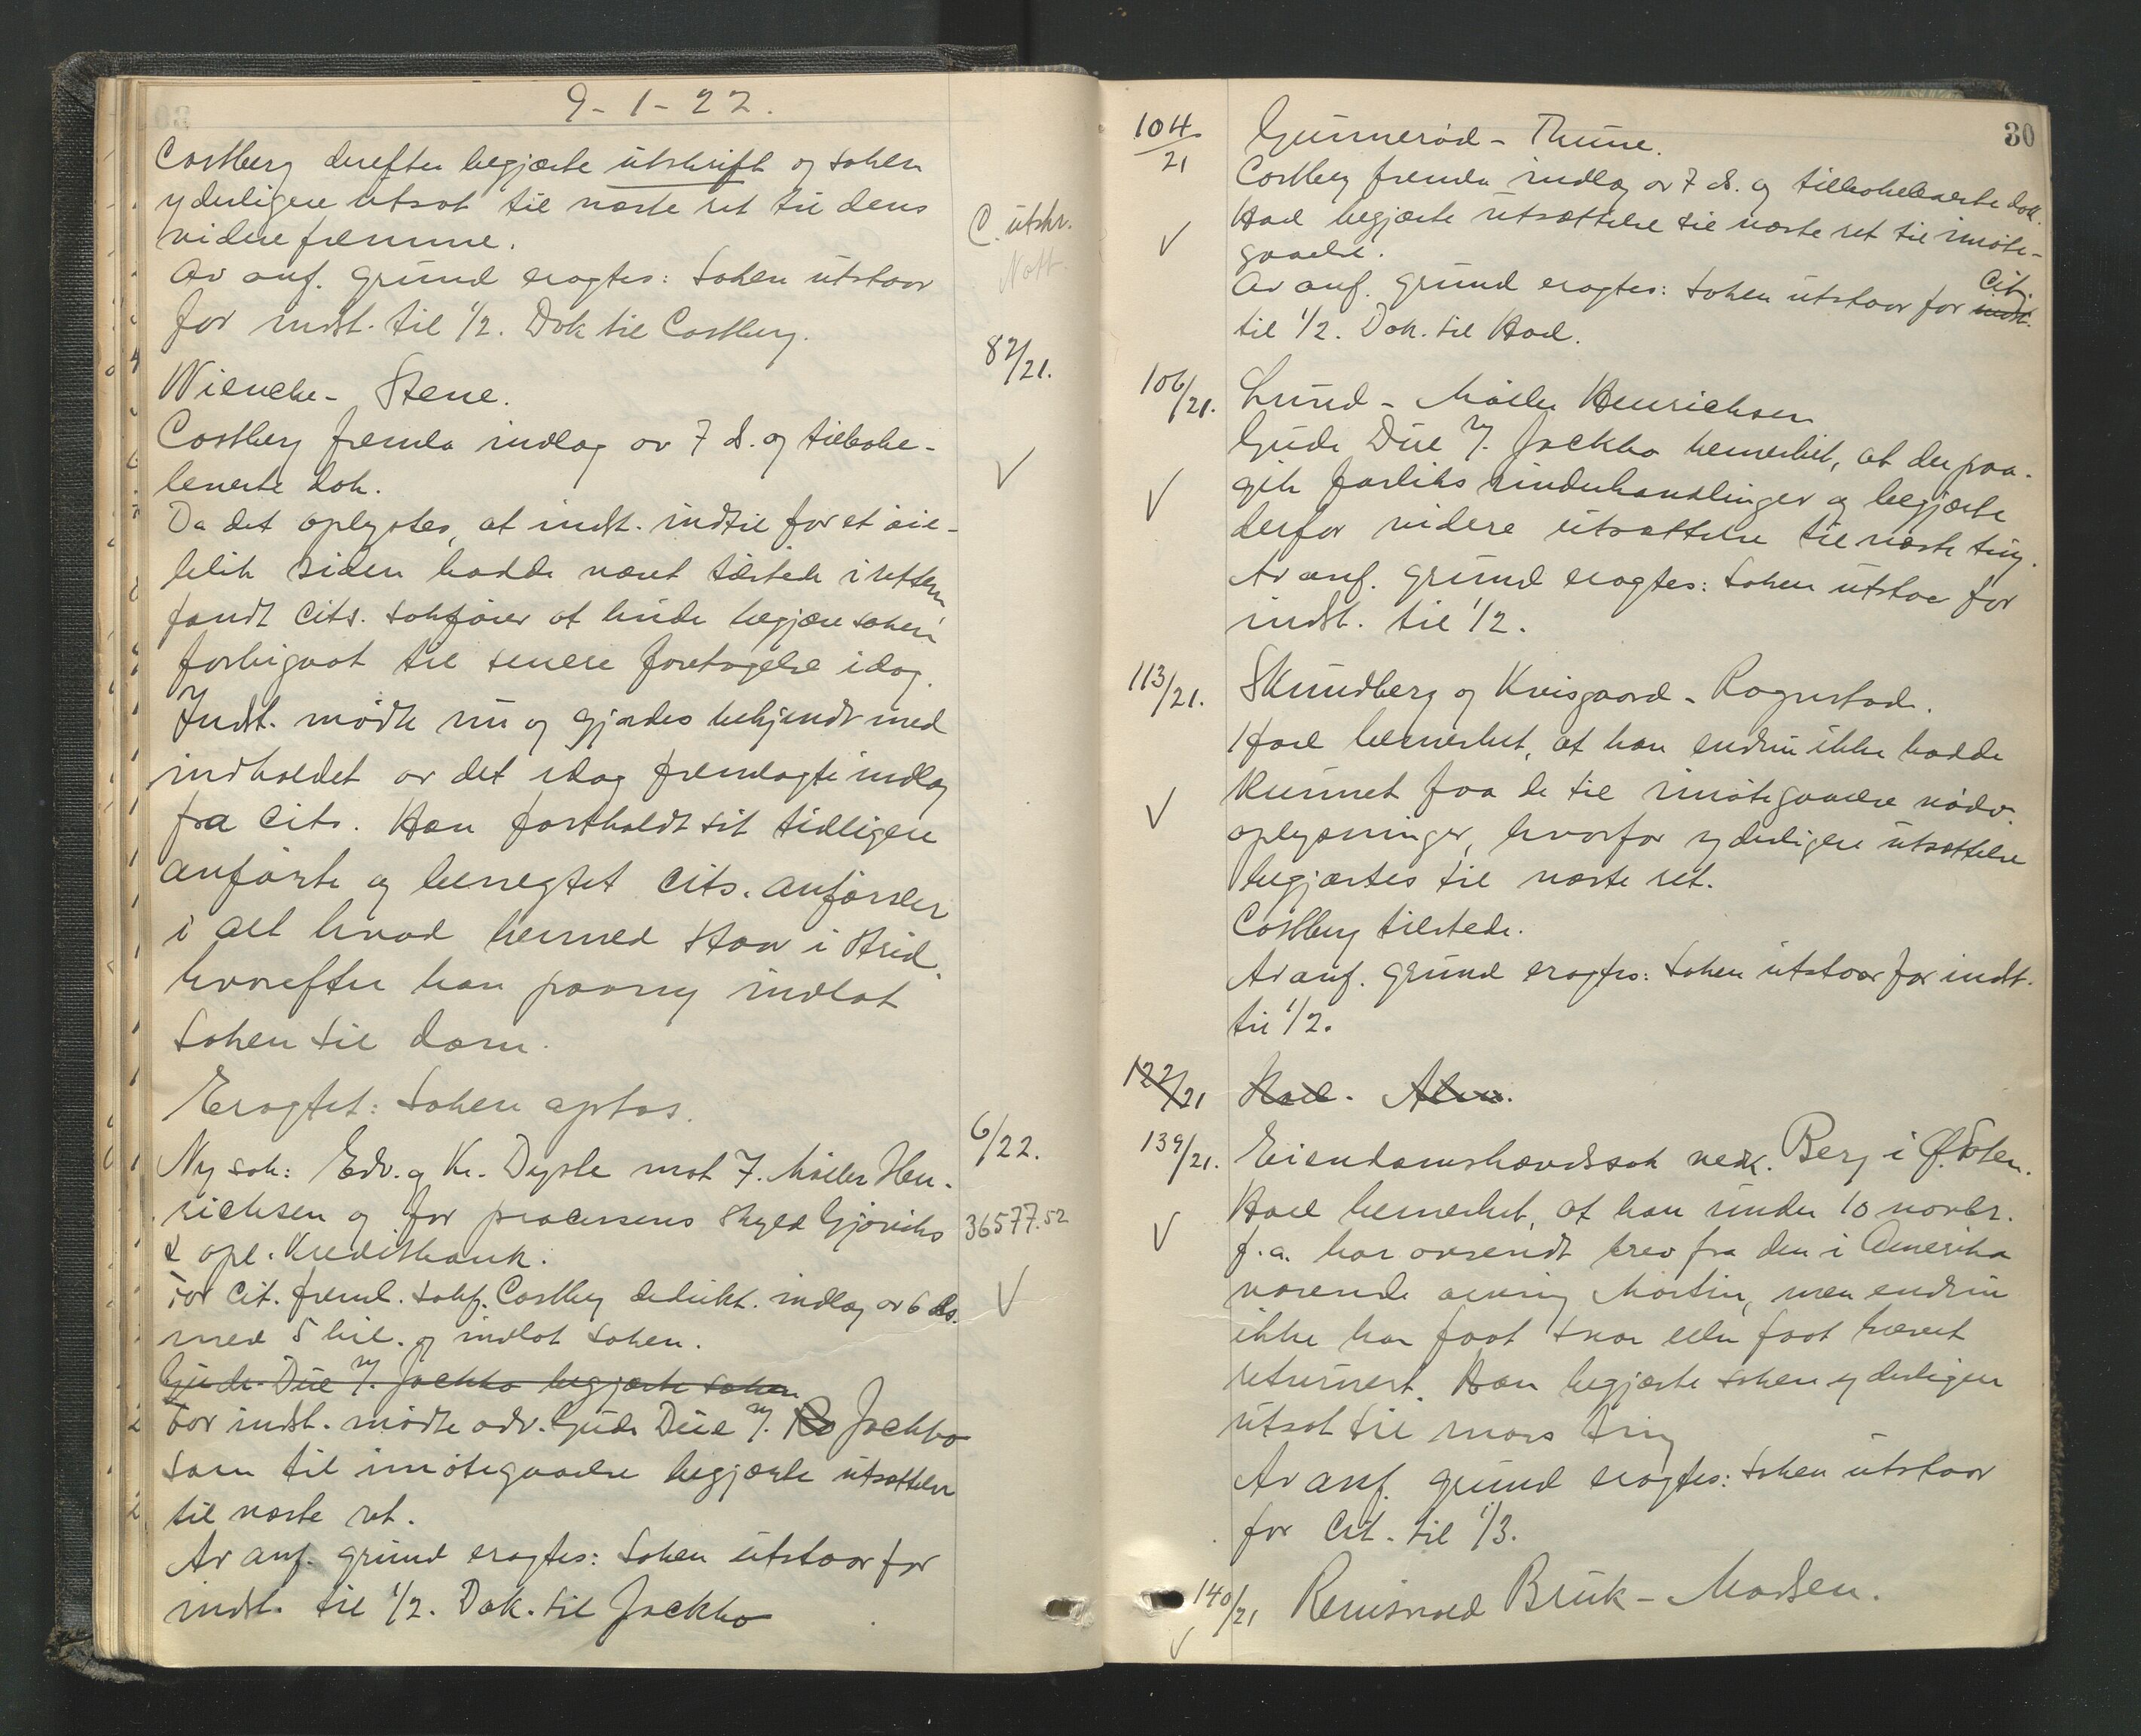 9-1-22.
Castberg derefter begjærte utskrift og saken
yderligere utsat til næste ret til dens
videre fremme.
C. utskr.
Av anf. grund eragtes: Saken utstaar
for indst. til 1/2. Dok til Castberg.
82/21.
Wiencke - Stene.
Castberg fremla indlæg av 7 ds. og tilbake-
leverte dok.
Da det oplystes, at indst. indtil for et øie-
blik siden hadde været tilstede i retten
fandt cits. sakfører at burde begjære saken
forbigaat til senere foretagelse idag.
Indst. mødte nu og gjordes bekjendt med
indholdet av det idag fremlagte indlæg
fra cits. Han fastholdt sit tidligere
anførte og benegtet cits. anførsler
i alt hvad hermed staar i strid.
hvorefter han paany indlot
saken til dom.
Eragtet: Saken optas.
6/22.
Ny sak: Edv. og Kr. Dyste mot F. Møller Hen-
richsen og for processens skyld Gjøviks
36577.52
& opl. Kreditbank.
For cit. freml. sakf. Castberg dedukt. indlæg av 6 ds.
med 5 bil. og indlot saken.
Gude-Due v/. Jackbo begjærte saken
For indst. mødte adv. Gude Due v/. Jackbo
som til imøtegaaelse begjærte utsættelse
til næste ret.
Av anf. grund eragtes: Saken utstaar for
indst. til 1/2. Dok. til Jackbo
30
104/21
Gunnerød - Thune.
Castberg fremla indlæg av 7 ds. og tilbakeleverte dok.
Hoel begjærte utsættelse til næste ret til imøte-
gaaelse.
Av anf. grund eragtes: Saken utstaar for indst. Cit.
til 1/2. Dok. til Hoel.
106/21.
Lund - Møller Henrichsen
Gude Due v/. Jackbo bemerket, at der paa-
gik forliksunderhandlinger og begjærte
derfor videre utsættelse til næste ting.
Av anf. grund eragtes: Saken utstaar for
indst. til 1/2.
113/21.
Skundberg og Kvisgaard - Rognstad.
Hoel bemerket, at han endnu ikke hadde
kunnet faa de til imøtegaaelse nødv.
oplysninger, hvorfor yderligere utsættelse
begjærtes til næste ret.
Castberg tilstede.
Av anf. grund eragtes: Saken utstaar for indst.
til 1/2.
122/21
139/21.
Eiendomshævdssak vedk. Berg i Ø. Toten.
Hoel bemerket, at han under 10 novbr.
f.a. har avsendt brev fra den i Amerika
værende arving Martin, men endnu
ikke har faat svar eller faat brevet
returnert. Han begjærte saken yderligere
utsat til mars ting
Av anf. grund eragtes: Saken utstaar
for cit. til 1/3.
140/21
Reinsvold Bruk - Madsen.